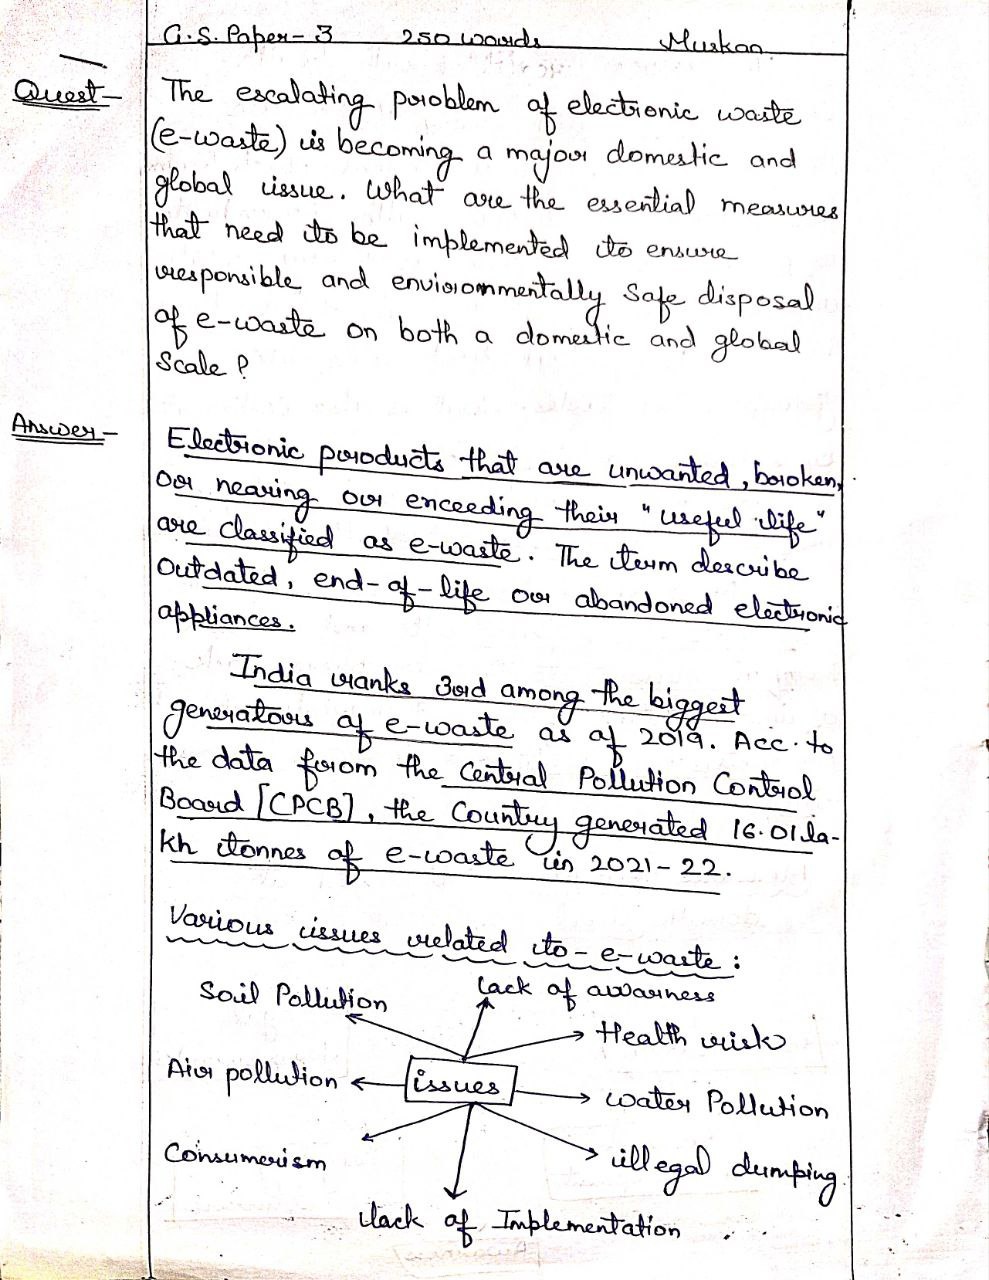 G.S. Paper-3 250 words Muskan
Quest- The escalating problem of electronic waste
(e-waste) is becoming a major domestic and
global issue. What are the essential measures
that need to be implemented to ensure
responsible and enviorommentally Safe disposal
of e-waste on both a domestic and global
Scale ?
Answer- Electronic products that are unwanted, broken,
Oor nearing our enceeding their "useful life"
are classified as e-waste. The term describe
Outdated, end-of-life our abandoned electronic
appliances.
India ranks 3rd among the biggest
generatours of e-waste as of 2019. Acc. to
the data from the Central Pollution Control
Board [CPCB], the Country generated 16.01 la-
kh tonnes of e-waste in 2021-22.
Various issues related to - e-waste :
Soil Pollution
lack of awarness
Health risk
Air pollution
issues
water Pollution
Consumerism
illegal dumping
lack of Implementation